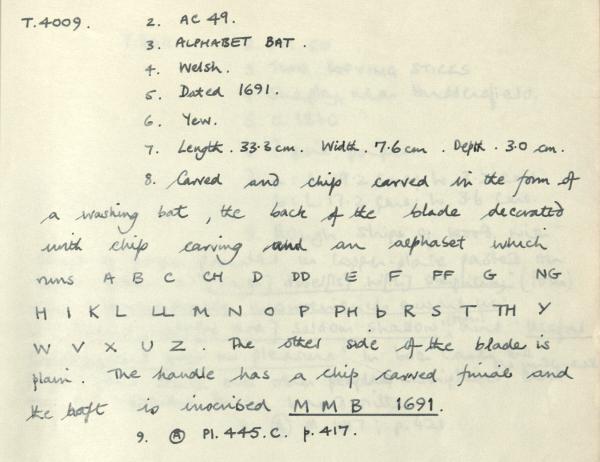 T.4009. 2. AC 49.
3. ALPHABET BAT.
4. Welsh.
5. Dated 1691.
6. Yew.
7. Length. 33.3 cm. Width. 7.6 cm. Depth. 3.0 cm.
8. Carved and chip carved in the form of
a washing bat, the back of the blade decorated
with chip carving and an alphabet which
runs A B C CH D DD E F FF G NG
H I K L LL M N O P PH b R S T TH Y
W V X U Z. The other side of the blade is
plain. The handle has a chip carved finial and
the haft is inscribed M M B 1691.
9. Ⓐ Pl. 445. C. p. 417.